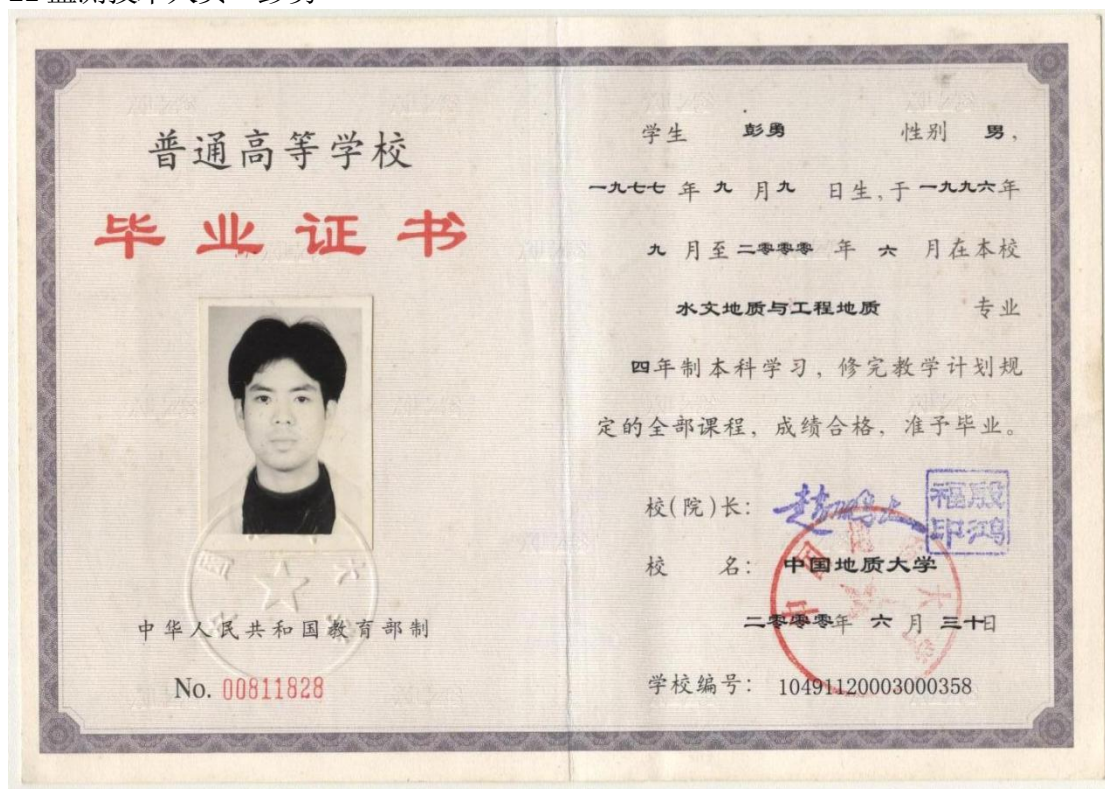 普通高等学校
毕业证书
中华人民共和国教育部制
No. 00811828
学生 彭勇 性别 男,
一九七七 年 九 月 九 日生,于 一九九六年
九 月至 二零零零 年 六 月在本校
水文地质与工程地质 专业
四年制本科学习，修完教学计划规
定的全部课程，成绩合格，准予毕业。
校(院)长：
殷鸿福印
校 名： 中国地质大学
二零零零年 六 月 三十日
学校编号： 10491120003000358